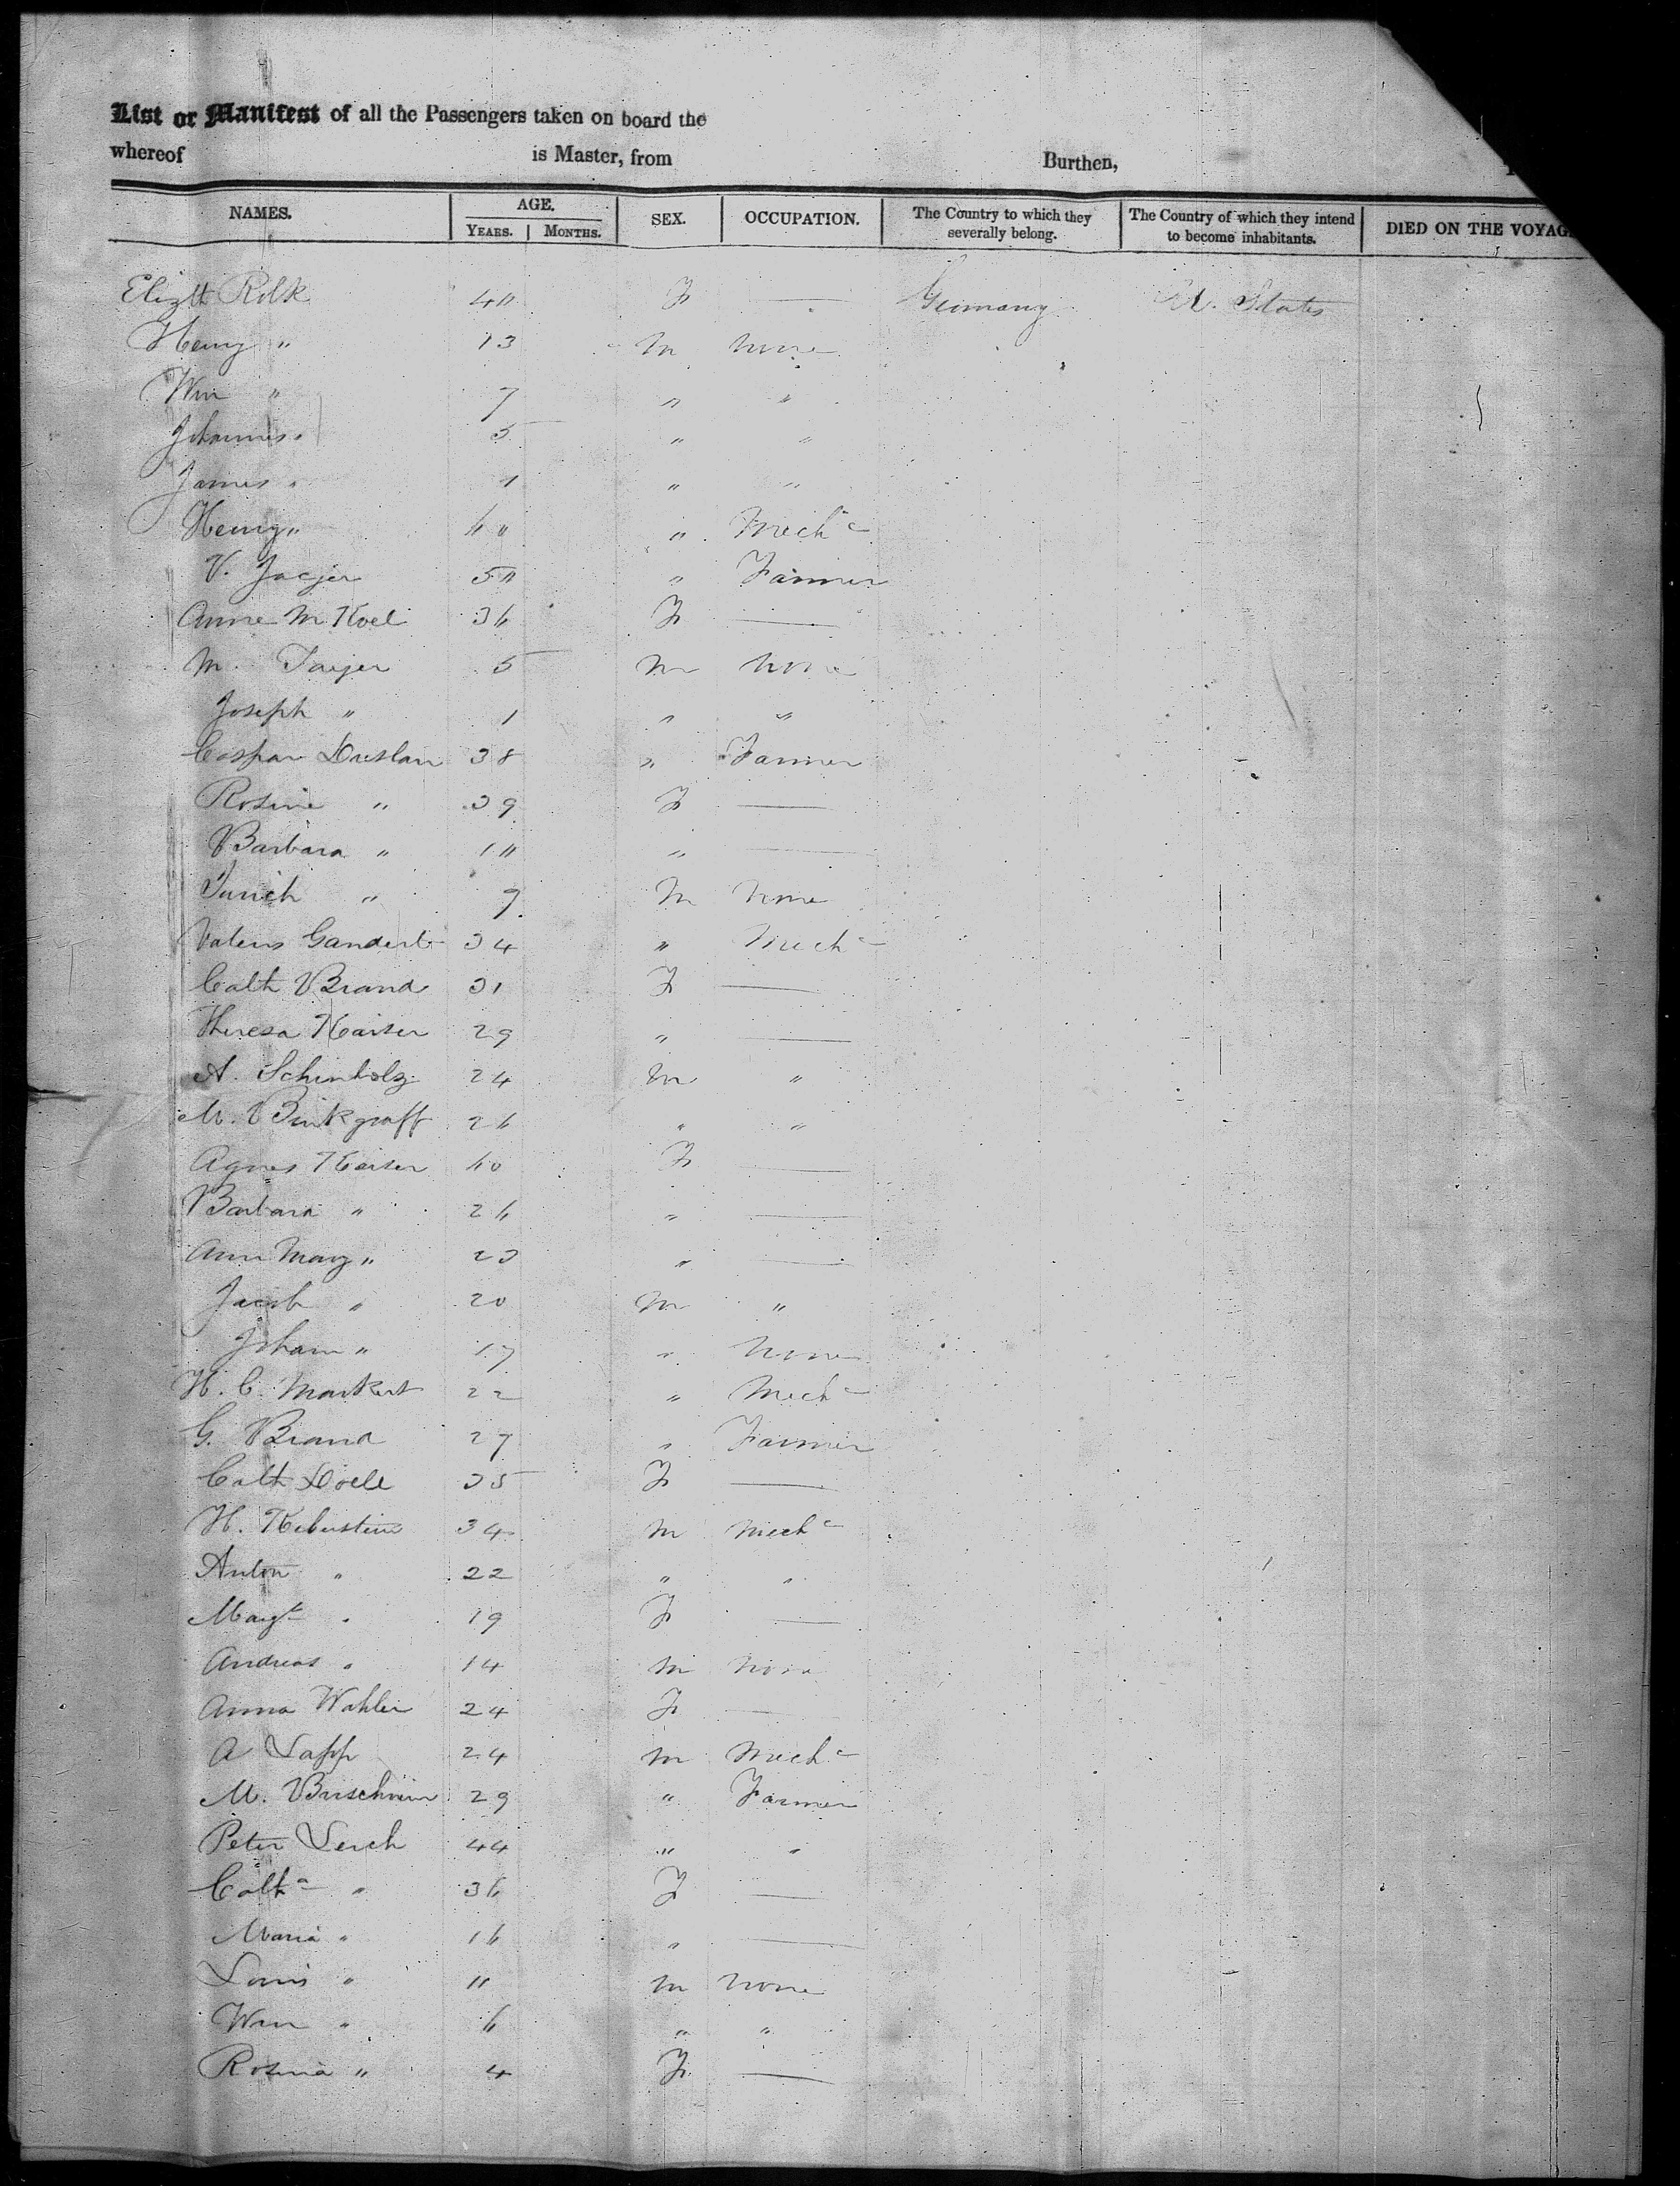 List or Manifest of all the Passengers taken on board the
whereof is Master, from Burthen,
NAMES. AGE. YEARS. MONTHS. SEX. OCCUPATION. The Country to which they severally belong. The Country of which they intend to become inhabitants. DIED ON THE VOYAG
Elizth Rolk 40 F — Germany U. States
Henry " 13 M None
Wm " 7 " "
Johannes " 5 " "
James " 1 " "
Henry " 40 " Mechc
V. Jaejer 50 " Farmer
Anne M. Koel 36 F —
M. Jaejer 5 M None
Joseph " 1 " "
Caspar 38 " Farmer
Rosine " 39 F —
Barbara " 10 " —
" 9 M None
34 " Mechc
Cath Brand 31 F —
Theresa Kaiser 29 " —
A. Schinholz 24 M "
M. Binkgraff 26 " "
Agnes Kaiser 60 F —
Barbara " 26 " —
Ann Mary " 23 " —
Jacob " 20 M "
Johann " 17 " None
H. C. Markert 22 " Mechc
G. Brand 27 " Farmer
Cath Doell 35 F —
H. 34 M Mechc
Anton " 22 " "
Margt " 19 F —
Andreas " 14 M None
Anna Wahler 24 F —
A Lapp 24 M Mechc
M. 29 " Farmer
Peter Lerch 44 " "
Catha " 36 F —
Maria " 16 " —
Louis " 11 M None
Wm " 6 " "
Rosina " 4 F —